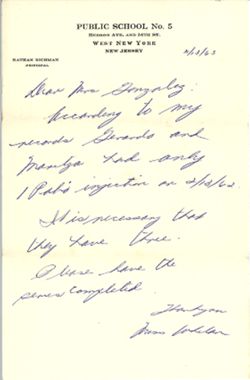 PUBLIC SCHOOL No. 5
HUDSON AVE. AND 54TH ST.
WEST NEW YORK
NEW JERSEY
NATHAN RICHMAN
PRINCIPAL
Dear Mrs Gonzalez:
According to my
records Gerardo and
Maritza had only
1 Polio injection on 2/12/62.
It is necessary that
they have three.
Please have the
series completed.
Thank you